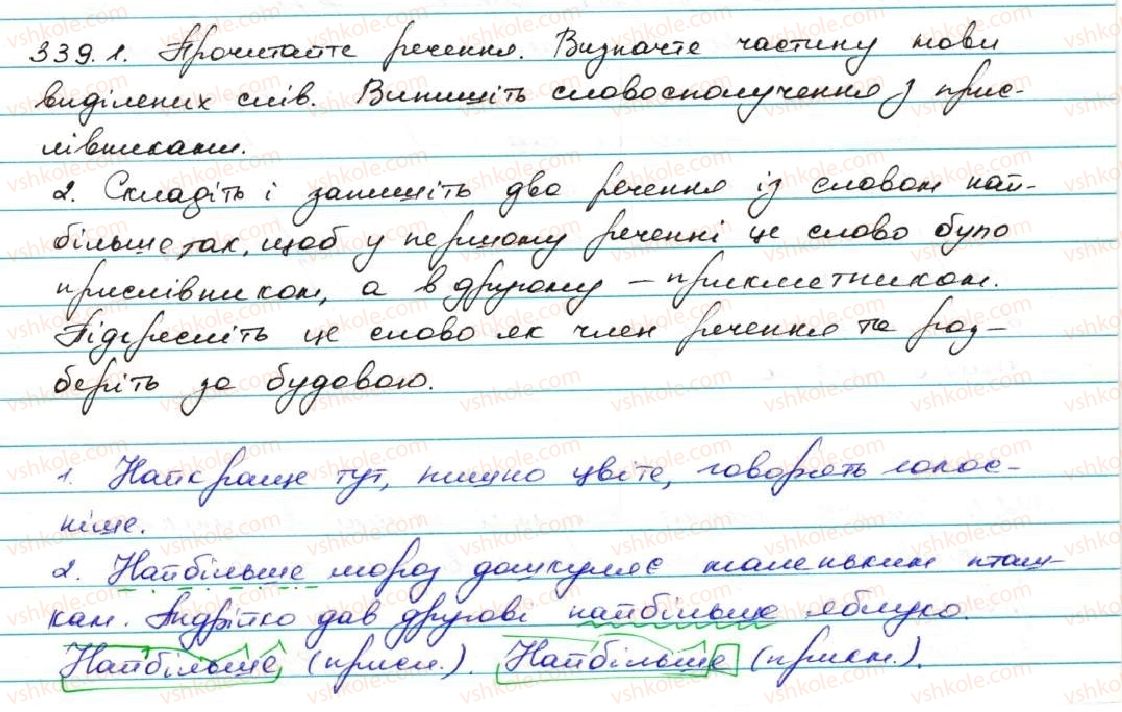 339.1. Прочитайте речення. Визначте частину мови
виділених слів. Випишіть словосполучення з прис-
лівниками.
2. Складіть і запишіть два речення із словом най-
більше так, щоб у першому реченні це слово було
прислівником, а в другому – прикметником.
Підкресліть це слово як член речення та роз-
беріть за будовою.
1. Найкраще тут, пишно цвіте, говорять голос-
ніше.
2. Найбільше мороз дошкуляє маленьким пташ-
кам. Андрійко дав другові найбільше яблуко.
Найбільше (присл.). Найбільше (прикм.).